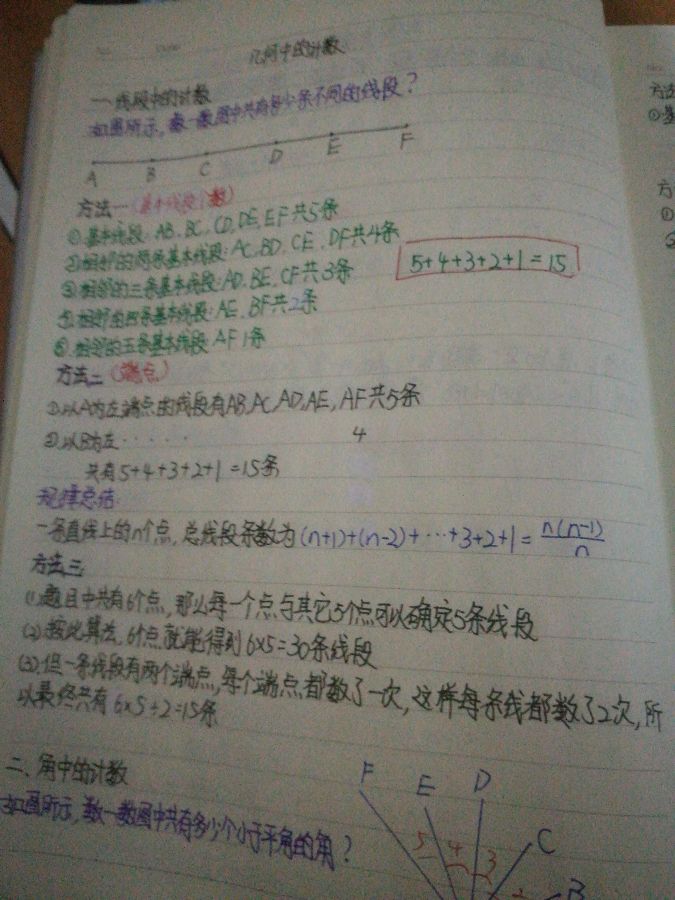 几何中的计数
一、线段中的计数
如图所示，数一数图中共有多少条不同的线段？
A B C D E F
方法一（基本线段个数）
①基本线段：AB、BC、CD、DE、EF共5条
②相邻的两条基本线段：AC、BD、CE、DF共4条
③相邻的三条基本线段：AD、BE、CF共3条
5+4+3+2+1=15
④相邻的四条基本线段：AE、BF共2条
⑤相邻的五条基本线段AF1条
方法二（端点）
①以A为左端点的线段有AB、AC、AD、AE、AF共5条
②以B为左······ 4
共有5+4+3+2+1=15条
规律总结
一条直线上的n个点，总线段条数为(n+1)+(n-2)+···+3+2+1=n(n-1)/n
方法三
(1)题目中共有6个点，那么每一个点与其它5个点可以确定5条线段
(2)按此算法，6个点就能得到6×5=30条线段
(3)但一条线段有两个端点，每个端点都数了一次，这样每条线都数了2次，所
以最终共有6×5÷2=15条
二、角中的计数
如图所示，数一数图中共有多少个小于平角的角？
F E D C B
5 4 3
方法
①基
方
①